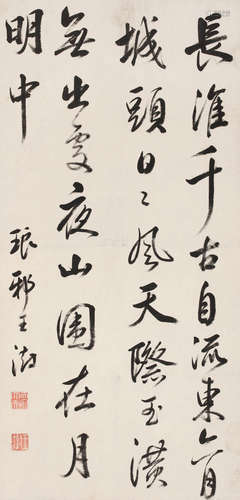 長淮千古自流東六月
城頭日々風天際玉潢
無出處夜山圍在月
明中
琅邪王澍